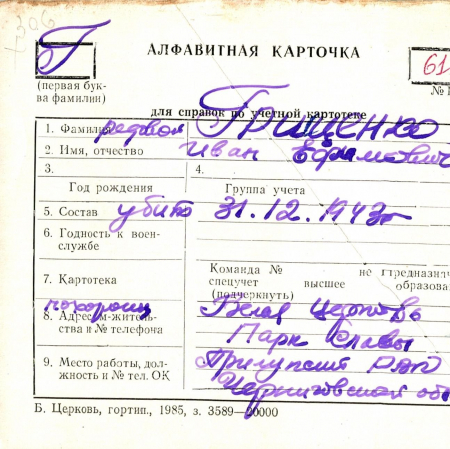 306
Г
АЛФАВИТНАЯ КАРТОЧКА
61
(первая бук-
ва фамилии)
№
для справок по учетной картотеке
1. Фамилия рядовой Грищенко
2. Имя, отчество Иван Ефимович
3.
4.
Год рождения
Группа учета
5. Состав убит 31.12.1943г
6. Годность к воен-
службе
7. Картотека
Команда № не предназнач
спецучет высшее образова
(подчеркнуть)
похоронен Белая Церковь
8. Адрес м-житель-
ства и № телефона
Парк Славы
9. Место работы, дол-
жность и № тел. ОК
Прилукский р-он
Черниговской об
Б. Церковь, гортип., 1985, з. 3589—20000